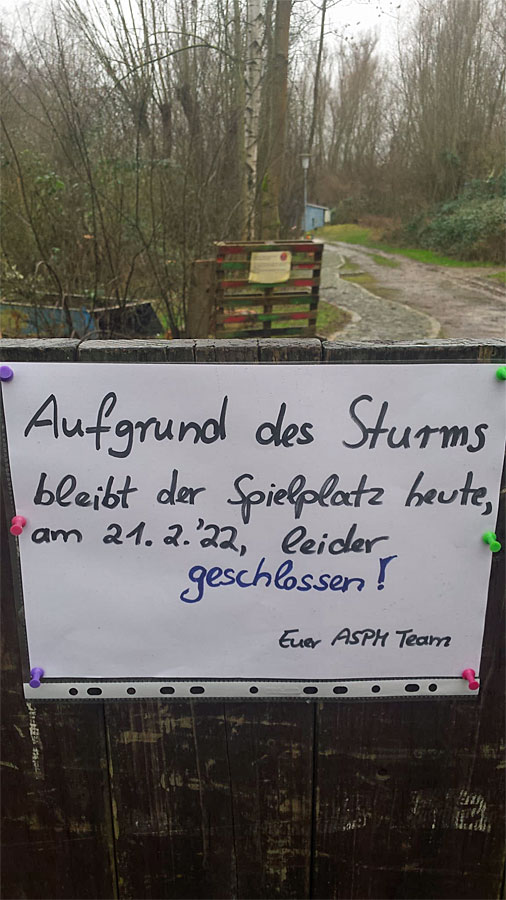 Aufgrund des Sturms
bleibt der Spielplatz heute,
am 21.2.'22, leider
geschlossen!
Euer ASPM Team